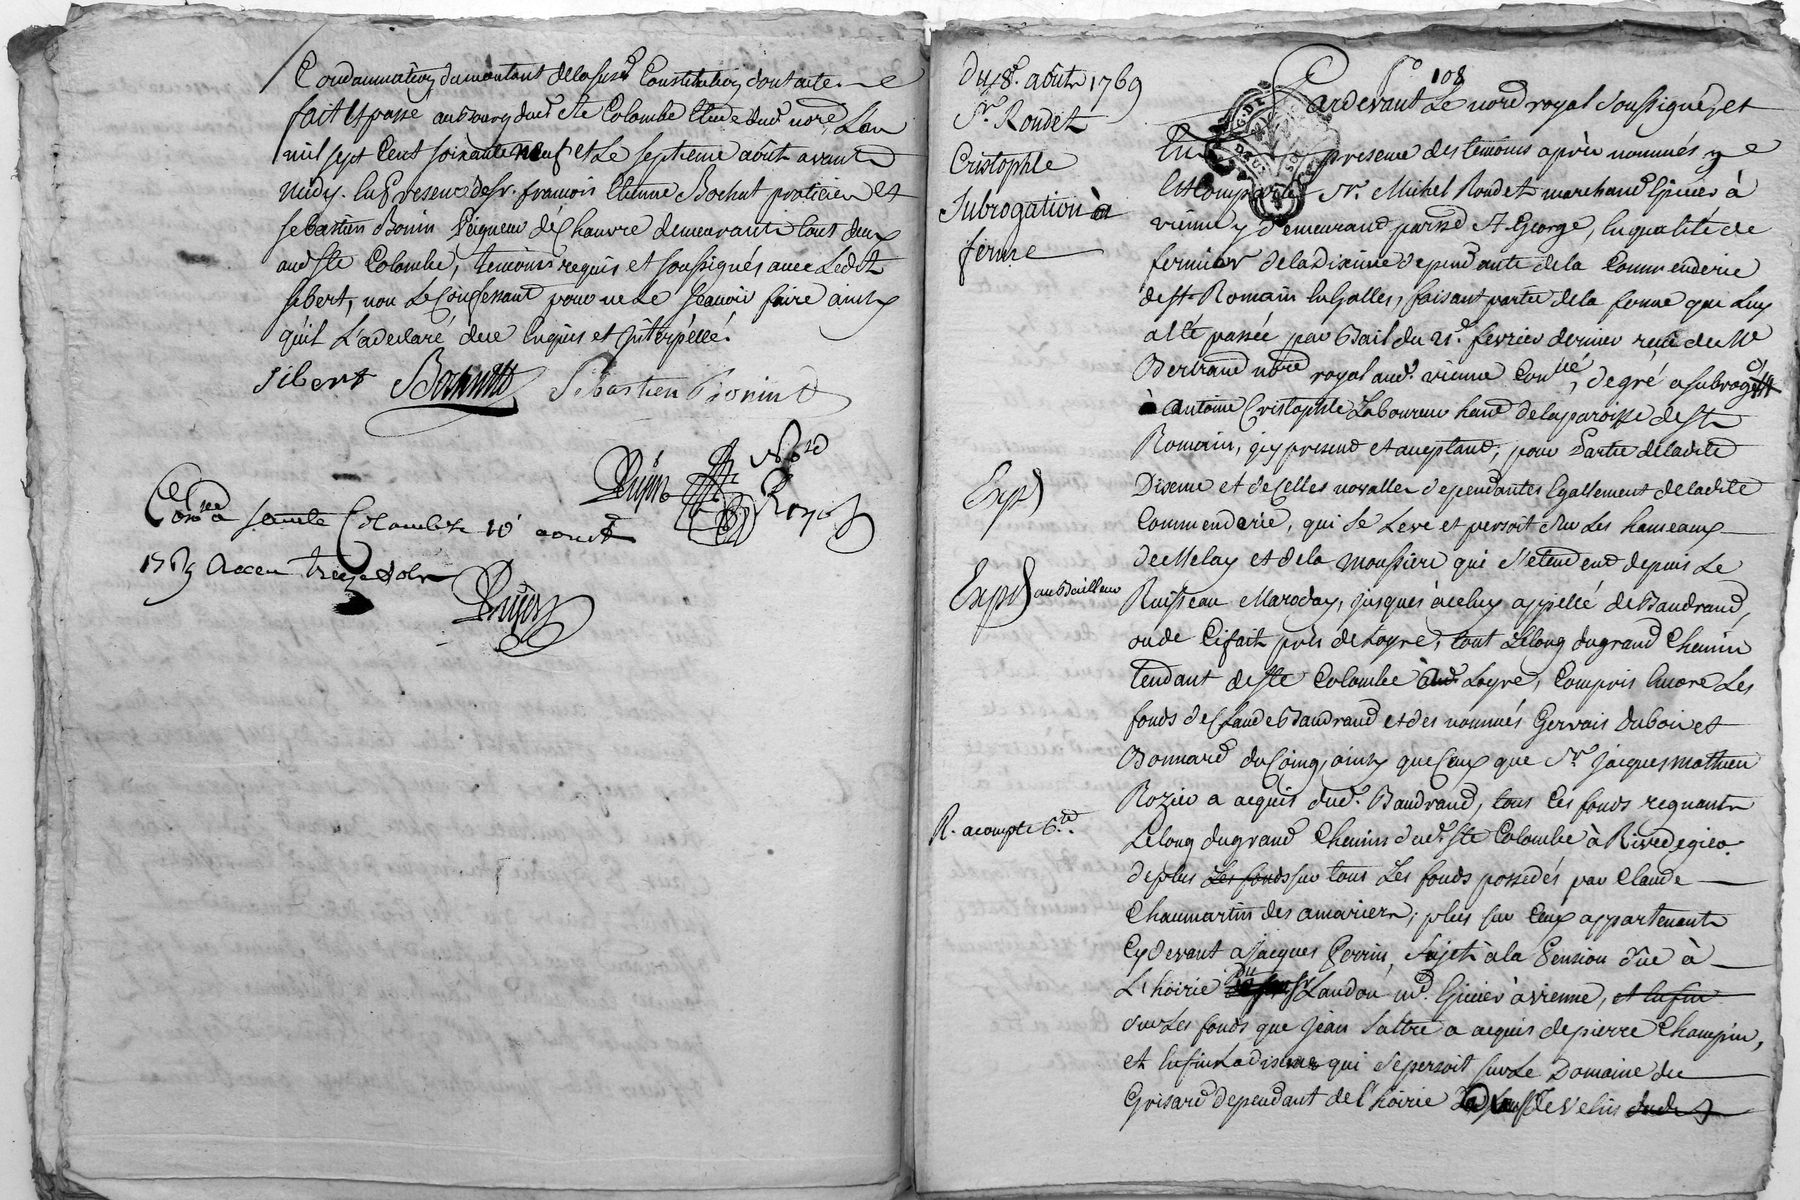 Condamnation du montant de la susd. Constitution dont acte
fait et passé au bourg dud. Ste Colombe Etude dud. nore, L'an
mil sept Cent soixante neuf et Le septieme août avant
midy. En presence de Sr. francois Etienne Bochut praticien et
sebastien Bonin Peigneur de Chanvre demeurants tous deux
aud. Ste Colombe, temoins requis et soussignés avec Ledit
Jibert, non Le Confessant pour ne Le sçavoir faire ainsy
qu'il L'a declaré de ce Enquis et interpéllé.
Jibert Sebastien Bonin
nore
Royal
Conlé a sainte Colombe le 10 aoust
1769 Receu treze sols
du 8e. août 1769
Sr. Rondet
Cristophle
Subrogation à
ferme
Expd
Expd au Bailleur
R. acompte 6.
fo 108
Pardevant Le nore royal soussigné, et
En presence des temoins après nommés
Est Comparu Sr. Michel Rondet marchand Epicier à
vienne y demeurand parsse St George, En qualité de
fermier de la Dixme dependante de la Commenderie
de St Romain En Galles, faisant partie de la ferme que Luy
a été passée par Bail du 21e. fevrier dernier reçu de Me
Bertrand nore royal aud. vienne Conlé, de gré a subrogé
à Antoine Cristophle Laboureur habt de la paroisse de St
Romain, icy present et acceptant, pour Partie de ladite
Dixme et de Celles novalles dependantes Egallement de ladite
Commenderie, qui se Leve et persoit sur Les hameaux
de Melay et de la Moussiere qui s'etendent depuis Le
Ruisseau Maroday, jusques à celuy appellé de Baudrand,
ou de Cifait près de Loyre, tout Le long du grand Chemin
tendant de Ste Colombe à Loyre, Compris Encore Les
fonds de Claude Baudrand et des nommés Gervais Dubois et
Bonnard du Coing, ainsy que Ceux que Sr. Jacques Mathieu
Rozier a acquis dud. Baudrand, tous Les fonds regnants
Le long du grand Chemin dud. Ste Colombe à Rivedegier.
de plus Les fonds sur tous Les fonds possedés par Claude
Chaumartin des amarieres; plus sur Ceux appartenants
Cydevant a Jacques Perrin, Sujets à la Pension dûe à
L'hoirie Du Sr Landon md. Epicier à vienne, et Enfin
sur Les fonds que Jean Saltre a acquis de pierre Champin,
et Enfin La dixme qui se persoit sur Le Domaine de
Grisard dependant de l'hoirie de Velin